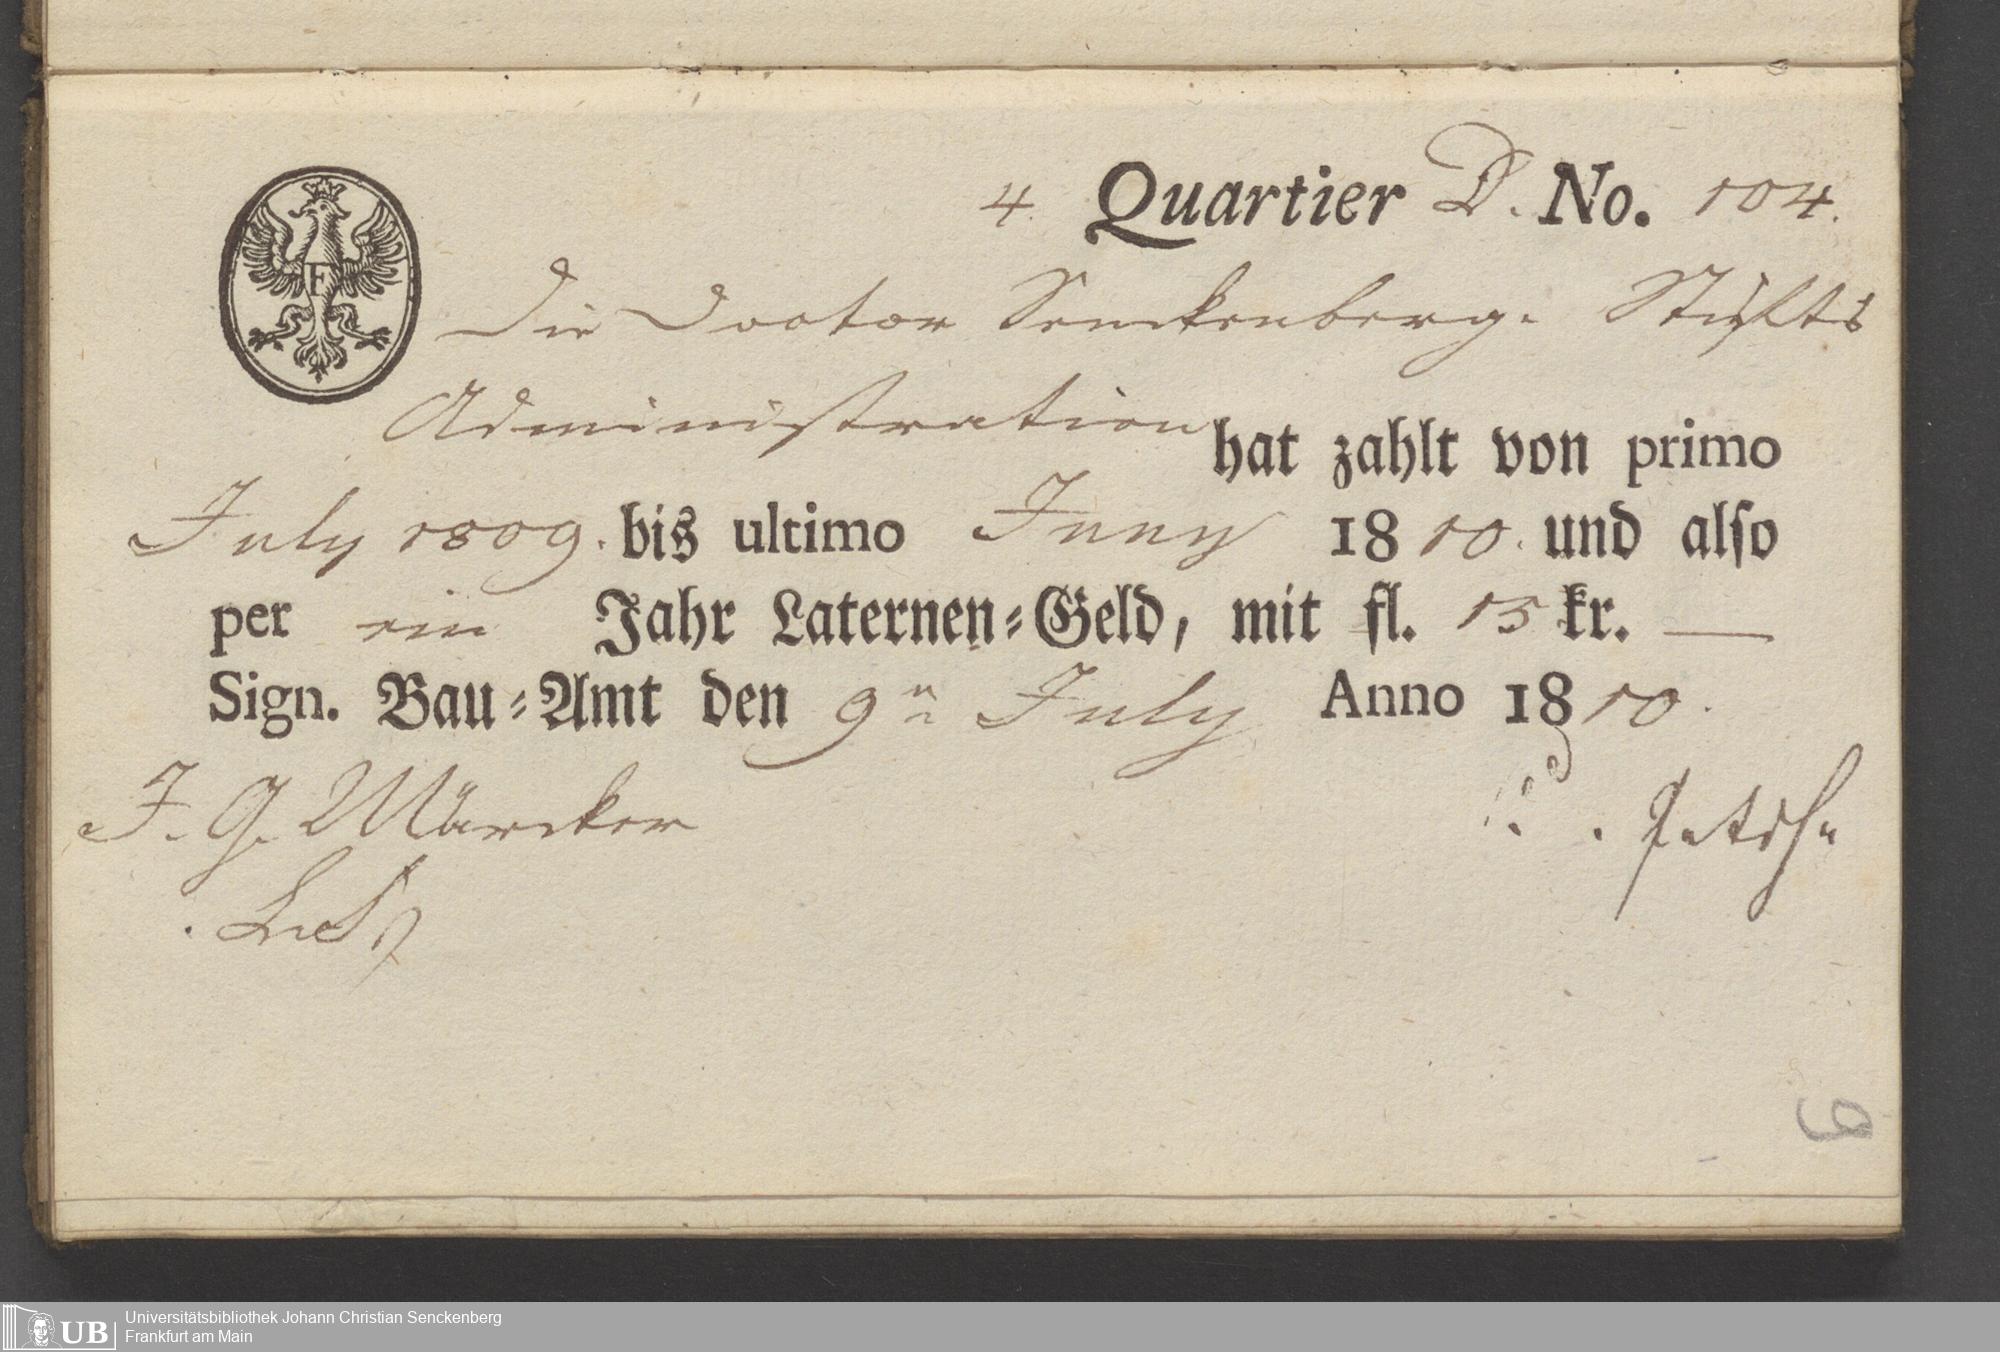 4. Quartier D. No. 104.
F
Die Doctor Senckenberg. Stifts
Administration hat zahlt von primo
July 1809. bis ultimo Juny 1810. und also
per ein Jahr Laternen=Geld, mit fl. 15 kr. —
Sign. Bau=Amt den 9n July Anno 1810.
J. G. Märcker
6
UB Universitätsbibliothek Johann Christian Senckenberg
Frankfurt am Main